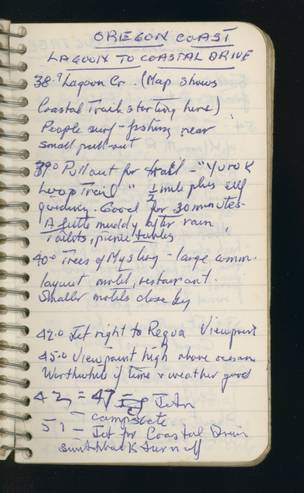 OREGON COAST
LAGOON TO COASTAL DRIVE
38.9 Lagoon Cr. (Map shows
Coastal Trail starting here)
People surf-fishing near
small pull-out
39.0 Pull out for trail - "Yurok
Loop Trail" ½ mile plus self
guiding. Good for 30 minutes-
A little muddy after rain,
toilets, picnic tables
40.0 Trees of Mystery - large comm.
layout motel, restaurant.
Smaller motels close by
42.0 Jct right to Requa Viewpoint
45.0 Viewpoint high above ocean
Worthwhile if time & weather good
47 Jctn
campsite
51 - Jct for Coastal Drive
switchback turnoff